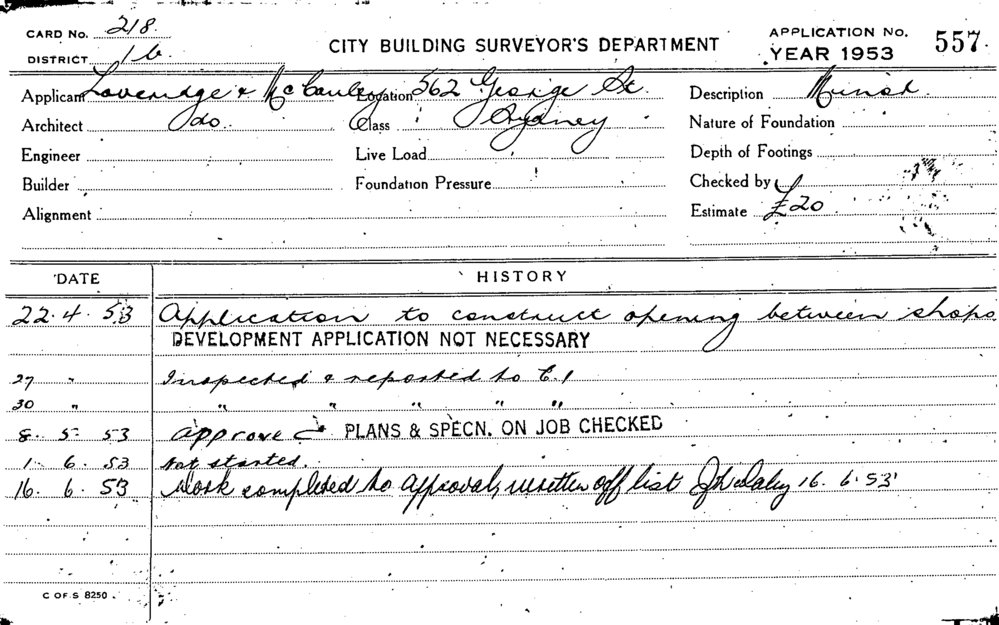 CARD No. 218.
DISTRICT 1b
CITY BUILDING SURVEYOR'S DEPARTMENT
APPLICATION No. 557.
YEAR 1953
Applicant Loveridge & McCauley Location 562 George St. Description Minor
Architect do. Class Sydney Nature of Foundation
Engineer Live Load Depth of Footings
Builder Foundation Pressure Checked by
Alignment Estimate £20
DATE HISTORY
22. 4. 53 Application to construct opening between shops
DEVELOPMENT APPLICATION NOT NECESSARY
27 " Inspected & reported to C.I
30 " " " " " "
8. 5. 53 approve PLANS & SPECN. ON JOB CHECKED
1. 6. 53 Not started.
16. 6. 53 Work completed to approval, written off list 16. 6. 53
C OF S 8250